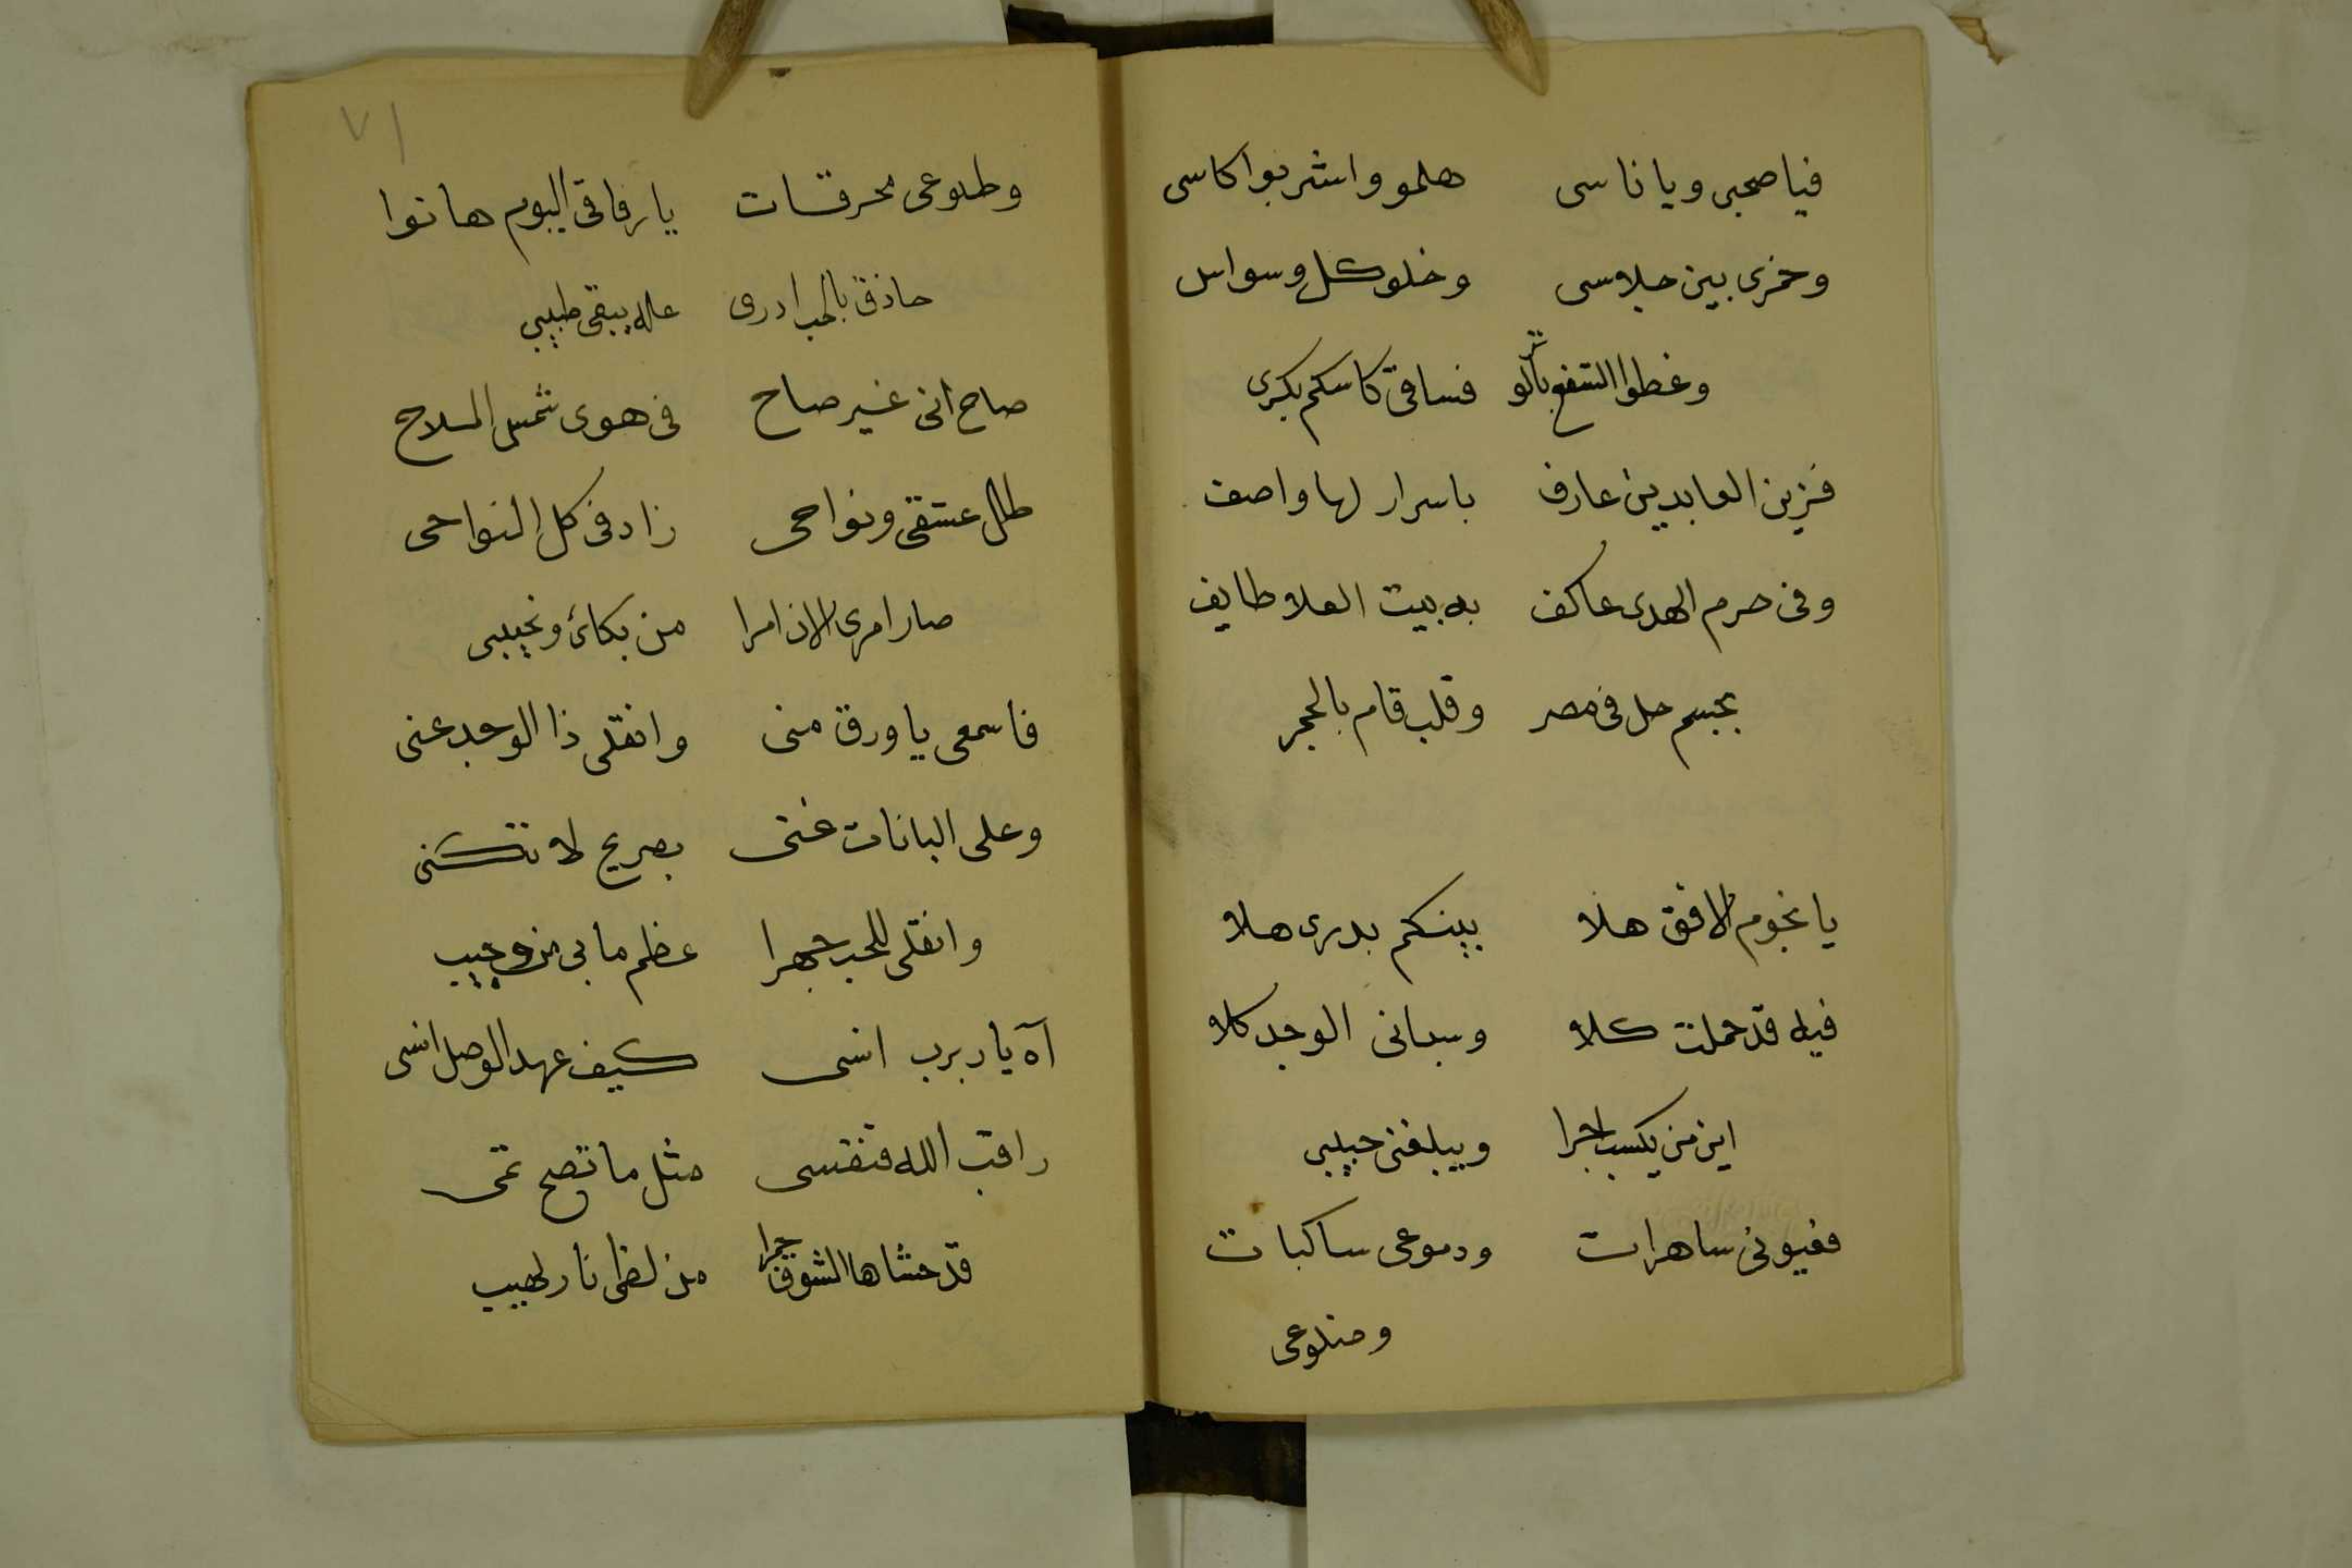 فيا صحبى ويا ناسى هلمو واشربوا كاسى
وخمرى بين جلاسى وخلو كل وسواس
وغطوا الشفع بالوتر فساقى كاسكم بكرى
فزين العابدين عارف باسرار لها واصف
وفى حرم الهدى عاكف به بيت العلا طايف
بجسم حل فى مصر وقلب قام بالحجر
يا نجوم الافق هلا بينكم بدرى هلا
فيه قد حملت كلا وسبانى الوجد كلا
اين من يكسب اجرا ويبلغنى حبيبى
فعيونى ساهرات ودموعى ساكبات
وضلوعى
٧١
وظلوعى محرقات يا رفاقى اليوم هاتوا
حاذق بالحب ادرى عله يبقى طبيبى
صاح انى غير صاح فى هوى شمس الملاح
طال عشقى ونواحى زاد فى كل النواحى
صار امرى الان امرا من بكائ ونحيبى
فاسمعى يا ورق منى وانقلى ذا الوجد عنى
وعلى البانات غنى بصريح لا تكنى
وانقلى للحب جهرا عظم ما بى من وجيب
آه يا ربرب انسى كيف عهد الوصل انسى
راقب الله فنفسى مثل ما تصبح تمسى
قد حشاها الشوق جمرا من لظى نار لهيب